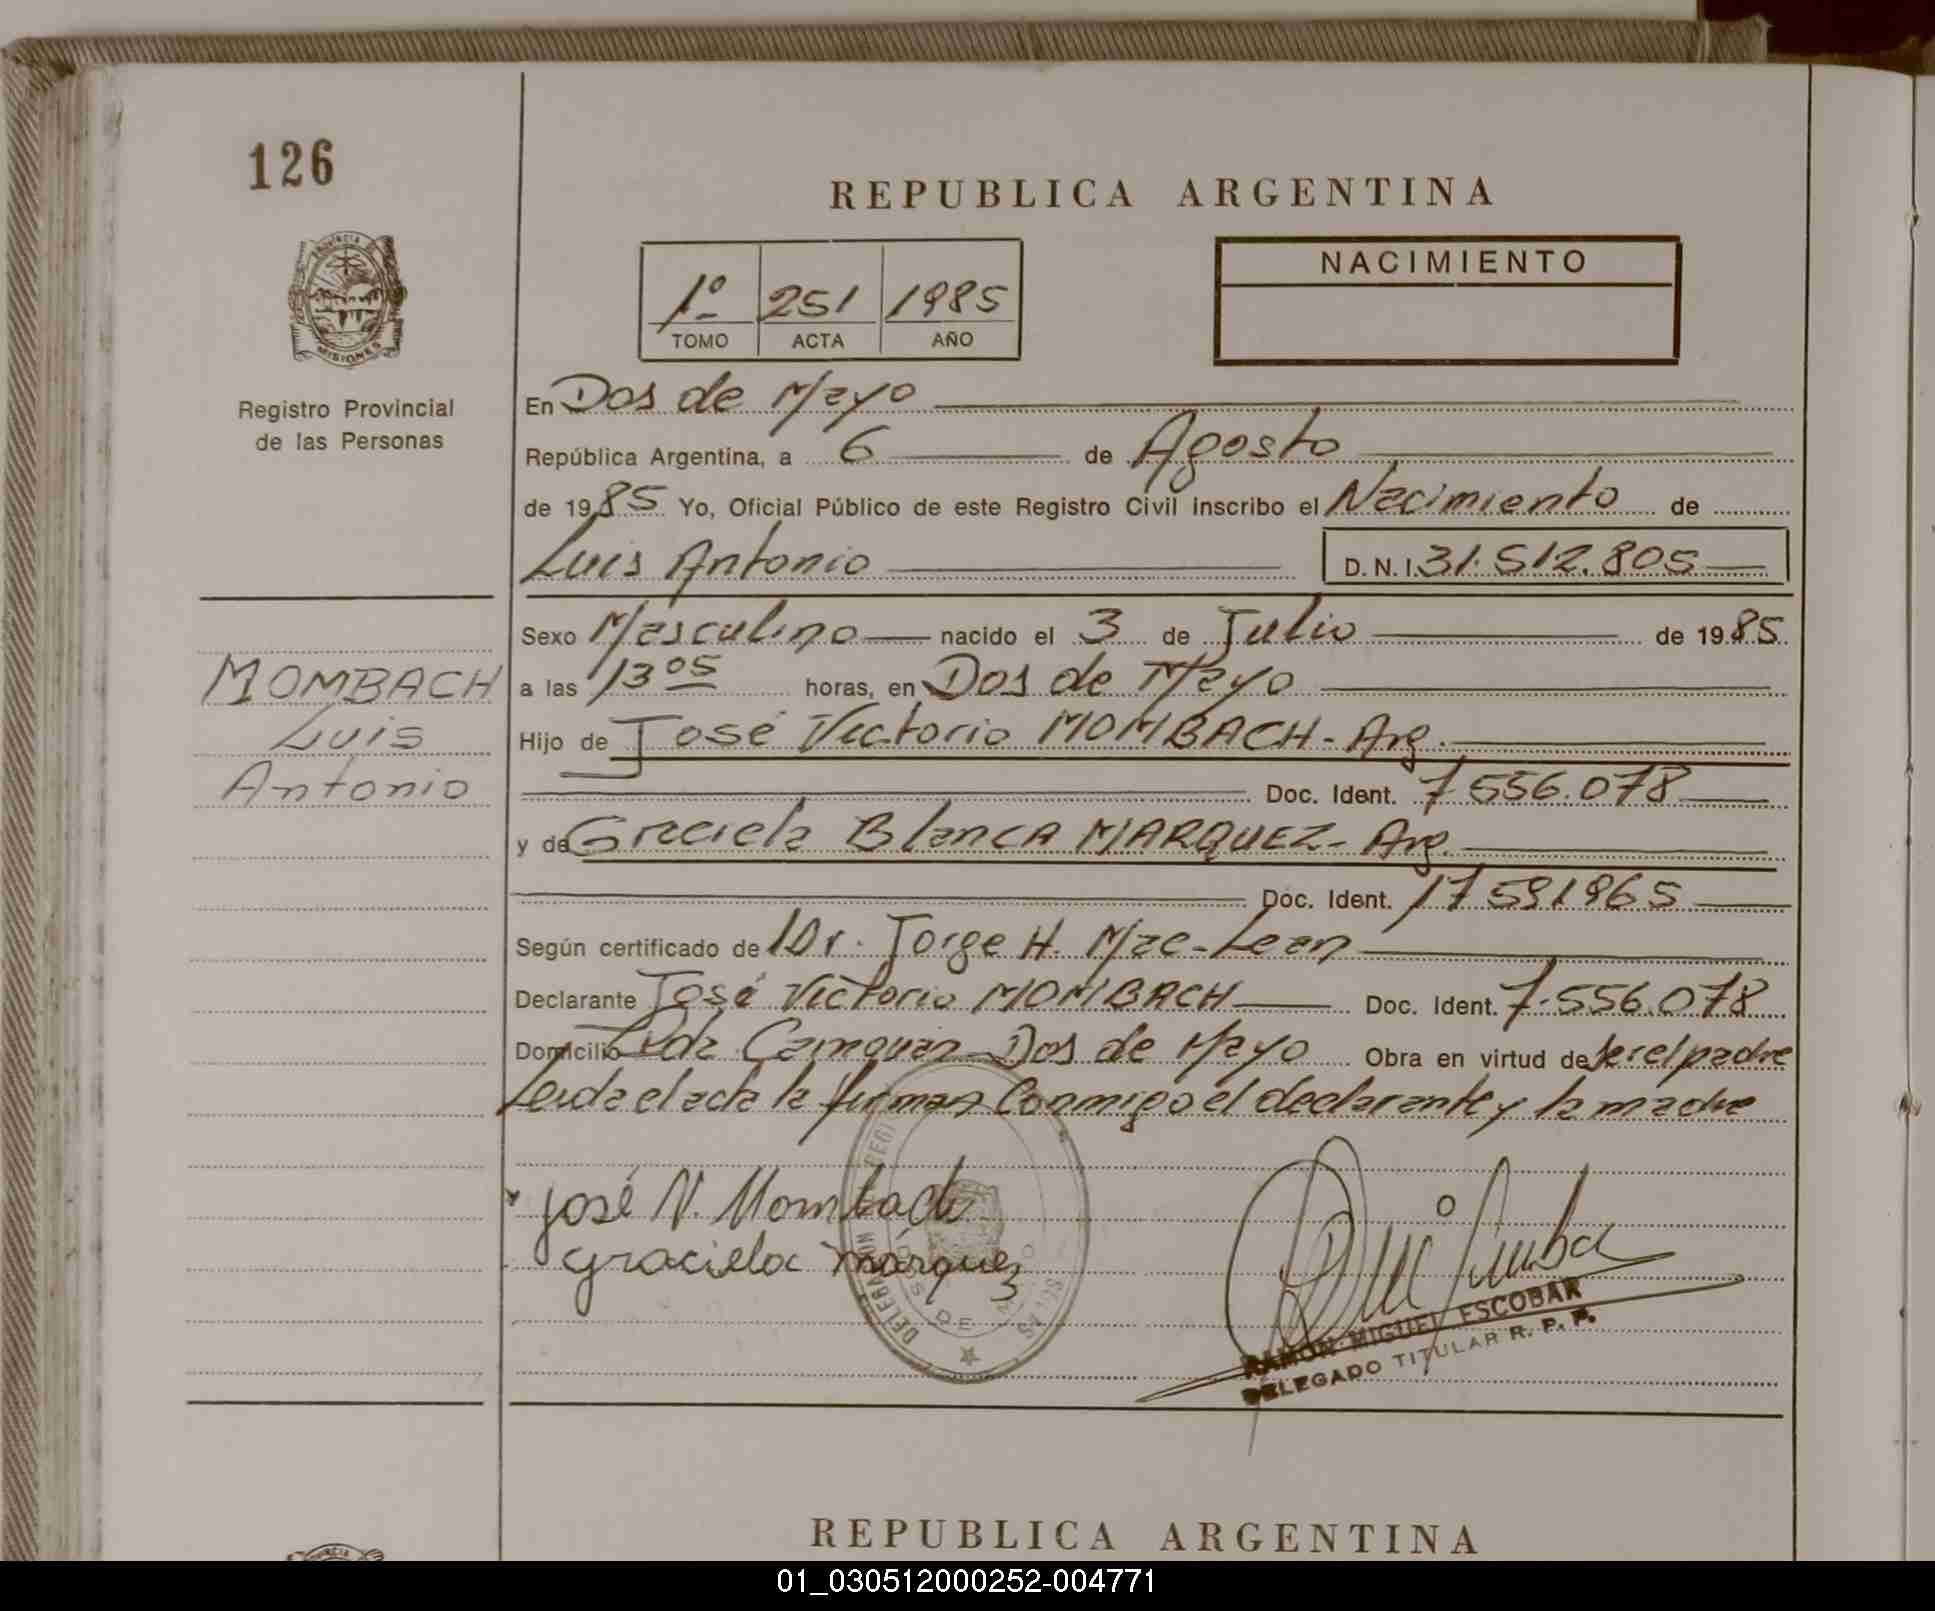 126
REPUBLICA ARGENTINA
PROVINCIA DE
MISIONES
Registro Provincial
de las Personas
1º 251 1985
TOMO ACTA AÑO
NACIMIENTO
En Dos de Mayo
República Argentina, a 6 de Agosto
de 1985 Yo, Oficial Público de este Registro Civil inscribo el Nacimiento de
Luis Antonio D.N.I. 31.512.805
Sexo Masculino nacido el 3 de Julio de 1985
MOMBACH
Luis
Antonio
a las 13 05 horas, en Dos de Mayo
Hijo de José Victorio MOMBACH - Arg.
Doc. Ident. 7.556.078
y de Graciela Blanca MARQUEZ - Arg.
Doc. Ident. 17 591965
Según certificado de Dr. Jorge H. Mac-Lean
Declarante José Victorio MOMBACH Doc. Ident. 7.556.078
Domicilio Dos de Mayo Obra en virtud de ser el padre
Leída el acta la firman Conmigo el declarante y la madre
José V. Mombach
Graciela márquez
DOS DE MAYO
RAMON MIGUEL ESCOBAR
DELEGADO TITULAR R. P. P.
REPUBLICA ARGENTINA
01_030512000252-004771